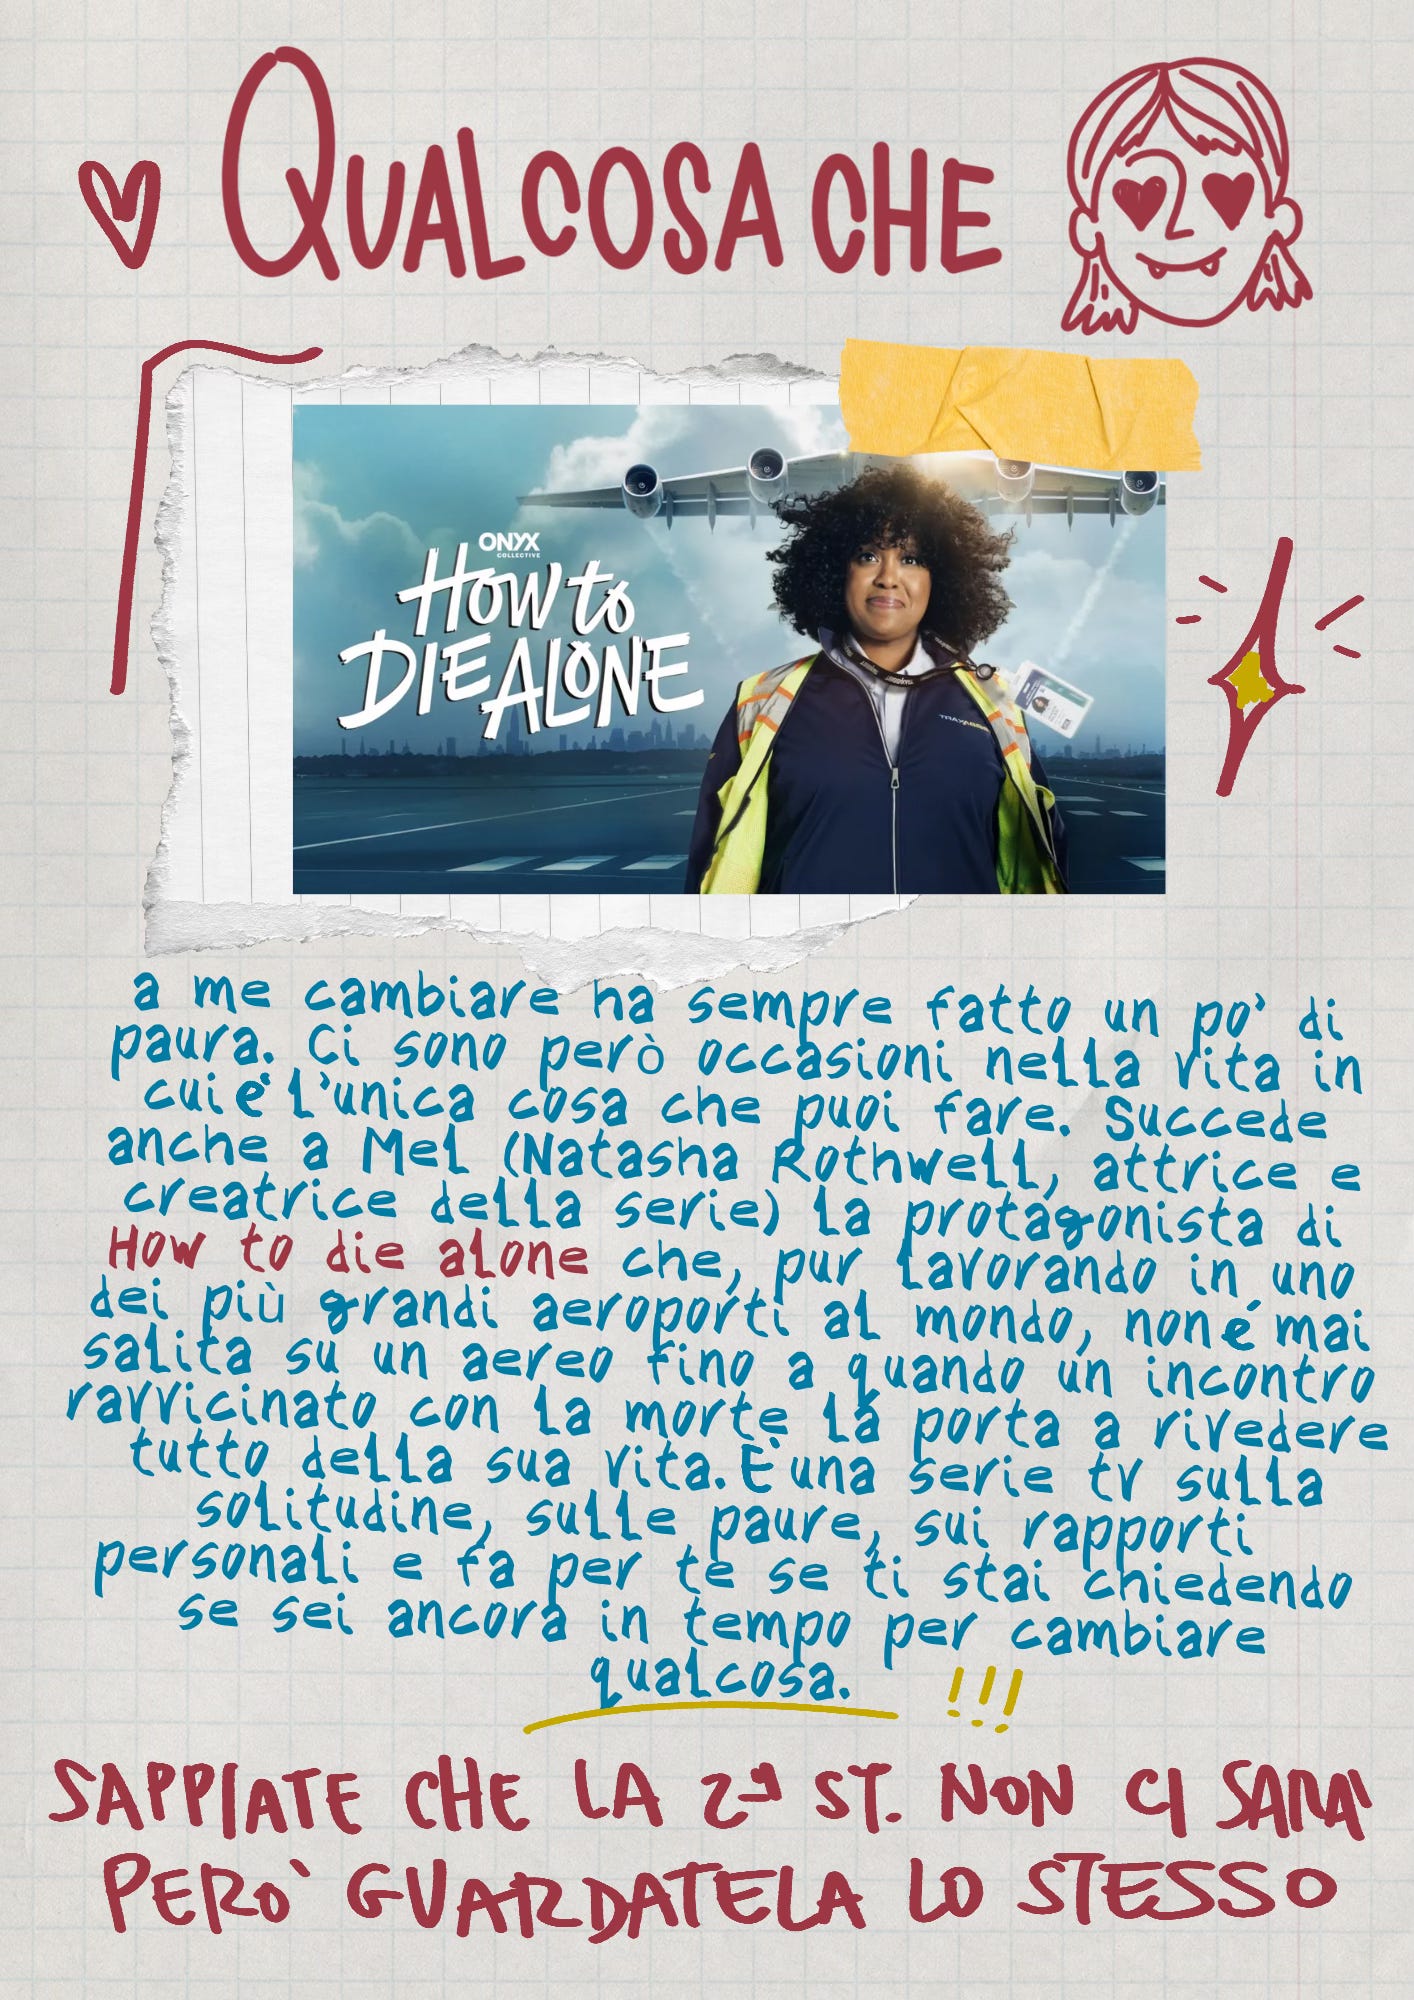 QUALCOSA CHE
ONYX
COLLECTIVE
HOW to
DIE ALONE
a me cambiare ha sempre fatto un po' di
paura. Ci sono però occasioni nella vita in
cui è l'unica cosa che puoi fare. Succede
anche a Mel (Natasha Rothwell, attrice e
creatrice della serie) la protagonista di
How to die alone che, pur lavorando in uno
dei più grandi aeroporti al mondo, non é mai
salita su un aereo fino a quando un incontro
ravvicinato con la morte la porta a rivedere
tutto della sua vita. È una serie tv sulla
solitudine, sulle paure, sui rapporti
personali e fa per te se ti stai chiedendo
se sei ancora in tempo per cambiare
qualcosa. !!!
SAPPIATE CHE LA 2ª ST. NON CI SARA'
PERO' GUARDATELA LO STESSO